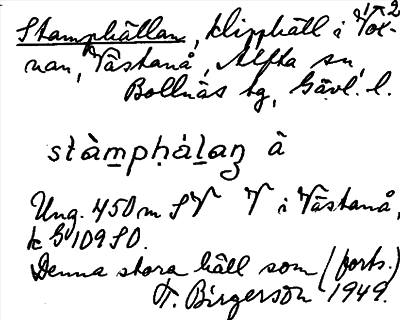 Stamphällan, klipphäll i Vox-
nan, Västanå, Alfta sn,
Bollnäs tg, Gävl. l.
stàmpḥálaṉ â
Ung. 450 m SV V i Västanå,
k G 109 SO.
Denna stora häll som (forts.)
T. Birgerson 1949.